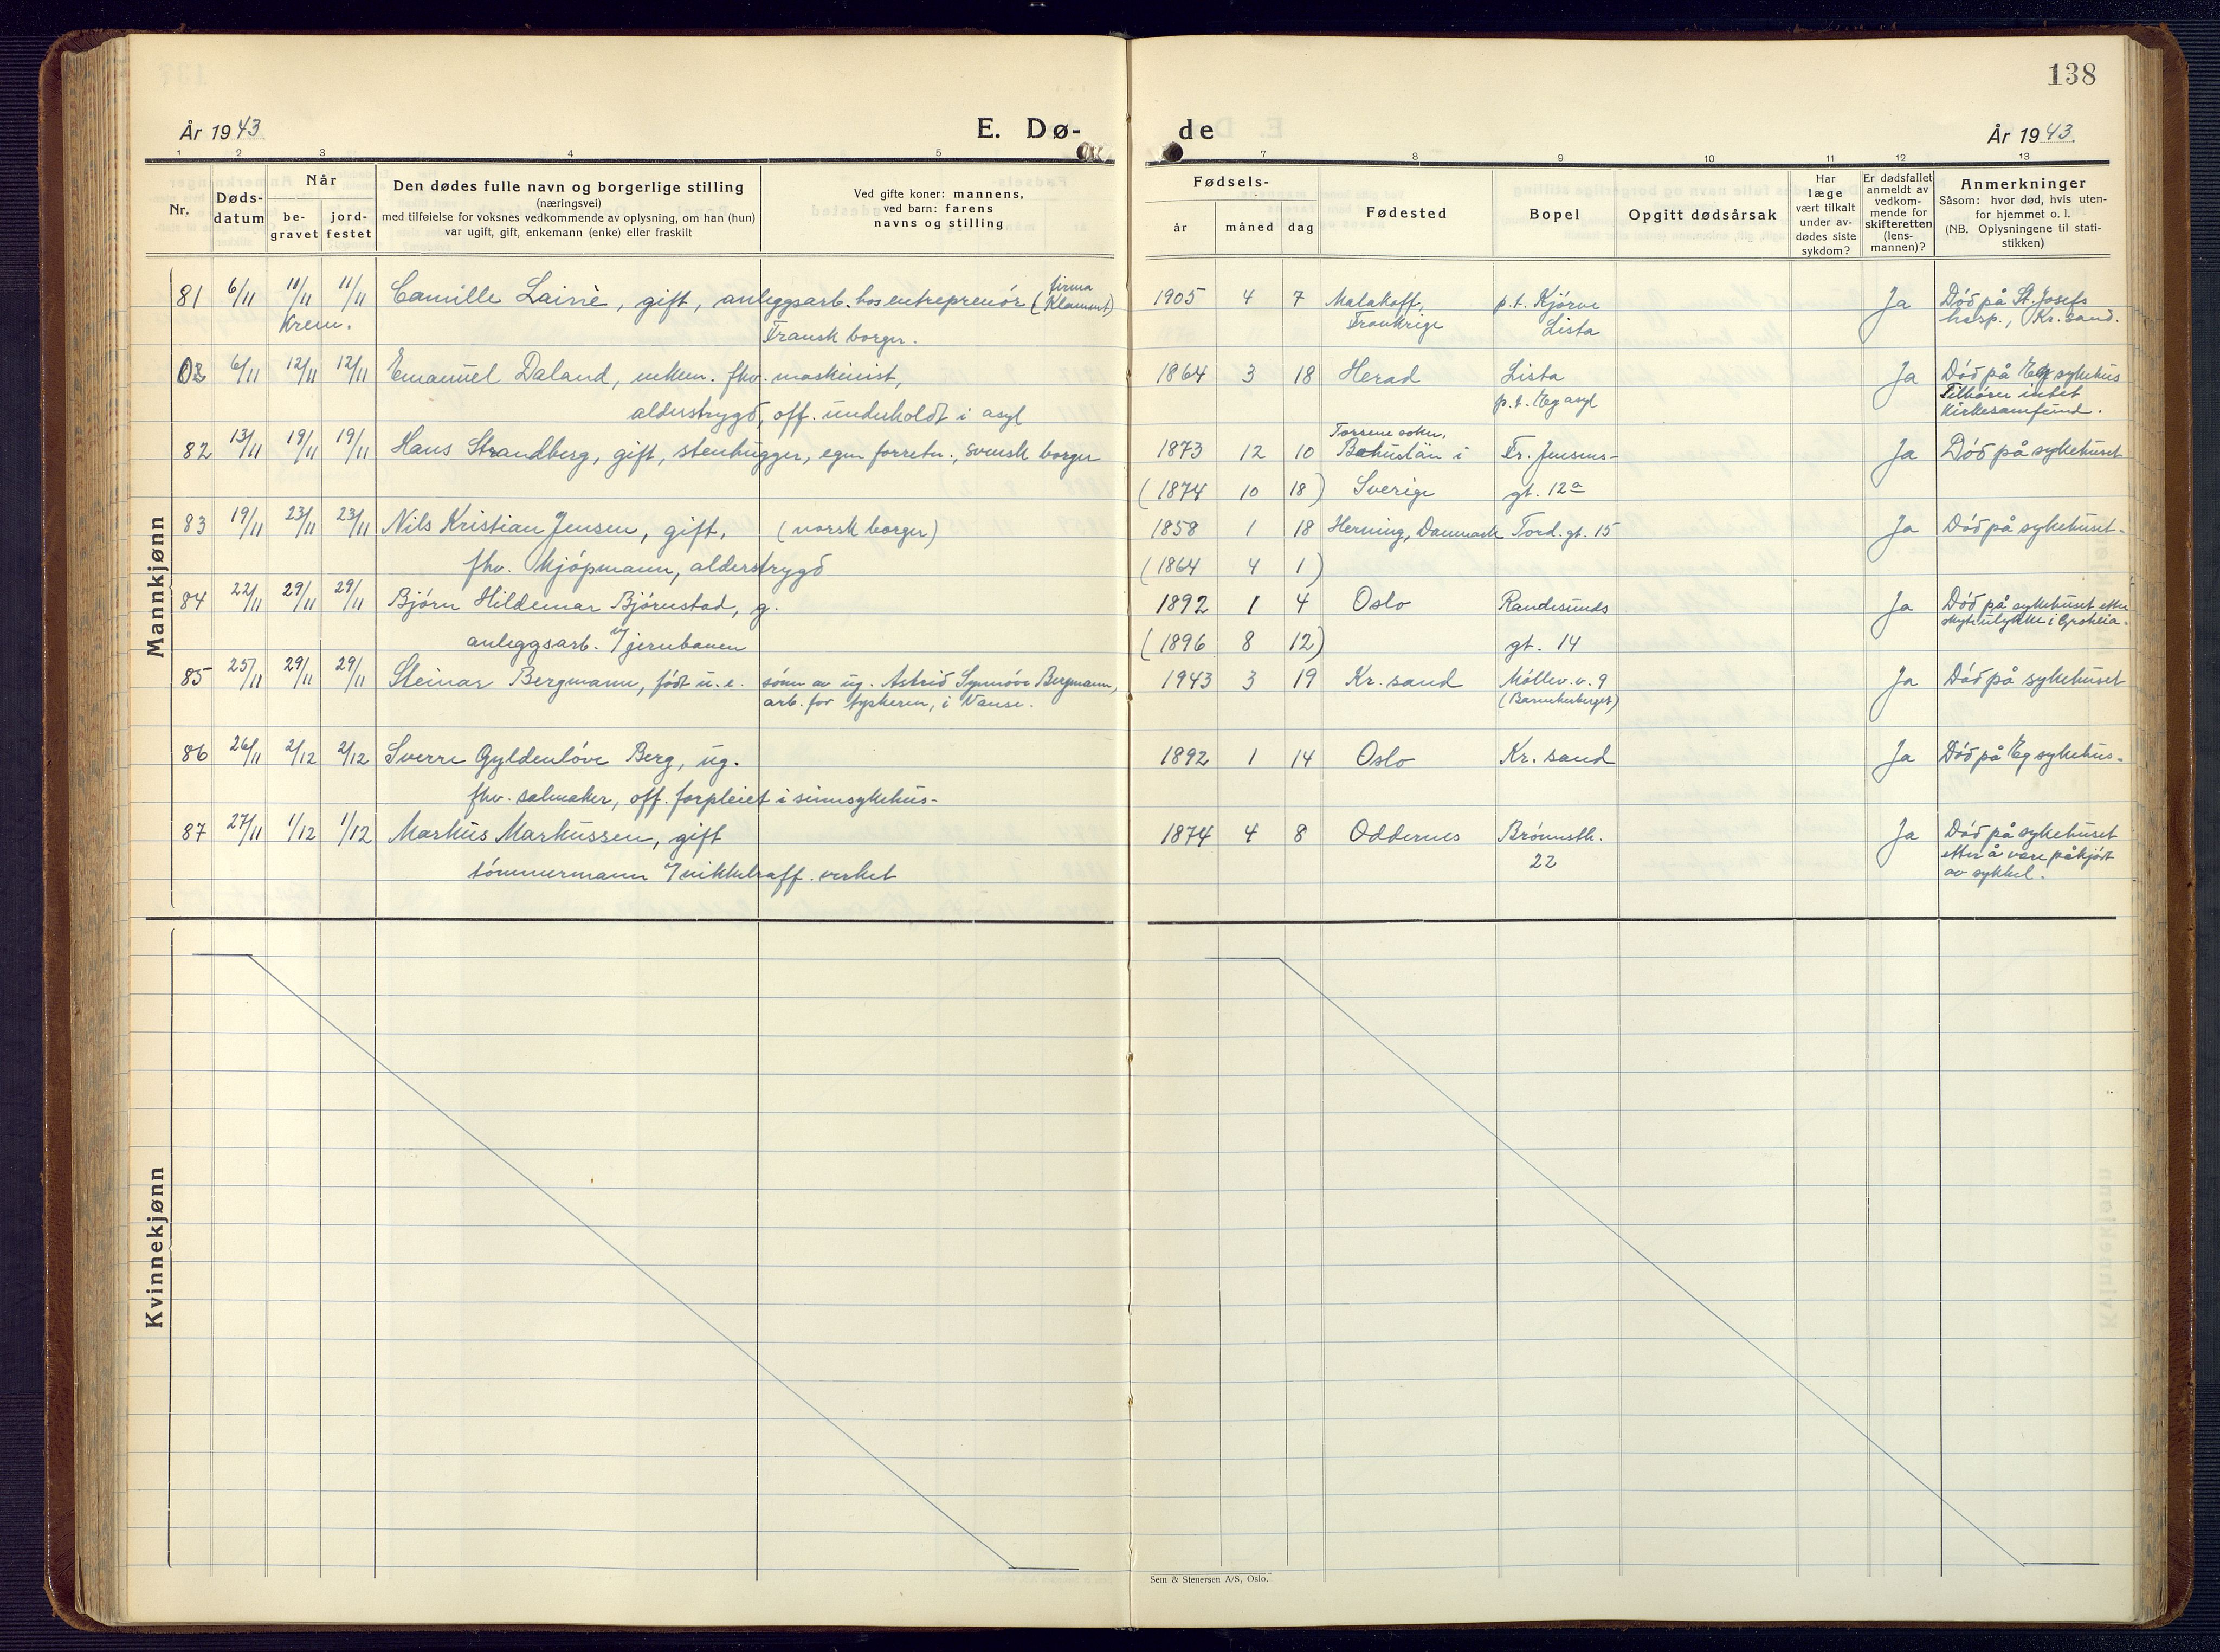 138
År 1943
E. Dø-
de
År 1943.
1 2 3 4 5 7 8 9 10 11 12 13
Nr.
Døds-
datum
Når
be-
gravet
jord-
festet
Den dødes fulle navn og borgerlige stilling
(næringsvei)
med tilføielse for voksnes vedkommende av oplysning, om han (hun)
var ugift, gift, enkemann (enke) eller fraskilt
Ved gifte koner: mannens,
ved barn: farens
navns og stilling
Fødsels-
år måned dag
Fødested
Bopel
Opgitt dødsårsak
Har
læge
vært tilkalt
under av-
dødes siste
sykdom?
Er dødsfallet
anmeldt av
vedkom-
mende for
skifteretten
(lens-
mannen)?
Anmerkninger
Såsom: hvor død, hvis uten-
for hjemmet o. l.
(NB. Oplysningene til stati-
stikken)
Mannkjønn
81 6/11 11/11 11/11 Camille Lainè, gift, anleggsarb. hos entreprenör (firma Klammt) 1905 4 7 Malakoff, p.t. Kjörve Ja Död på St. Josefs
Krem. Fransk borger. Frankrige Lista hosp., Kr.sand.
6/11 12/11 12/11 Emanuel Daland, enkem. fhv. maskinist, 1864 3 18 Herad Lista Ja Död på Eg sykehus
alderstrygd, off. underholdt i asyl p.t. Eg asyl Tilhörer intet
Kirkesamfund.
82 13/11 19/11 19/11 Hans Strandberg, gift, stenhugger, egen forretn., svensk borger 1873 12 10 Bohuslän i Fr. Jensens- Ja Död på sykehuset
(1874 10 18) Sverige gt. 12a
83 19/11 23/11 23/11 Nils Kristian Jensen, gift, (norsk borger) 1858 1 18 Herning, Danmark Tord. gt. 15 Ja Död på sykehuset.
fhv. kjöpmann, alderstrygd (1864 4 1)
84 22/11 29/11 29/11 Björn Hildemar Björnstad, g. 1892 1 4 Oslo Randesunds Ja Död på sykehuset etter
anleggsarb. v/jernbanen (1896 8 12) gt. 14 skyteulykke i Groheia.
85 25/11 29/11 29/11 Steinar Bergmann, födt u.e. sönn av ug. Astrid Synnöve Bergmann, 1943 3 19 Kr. sand Möllev.v. 9 Ja Död på sykehuset
arb. for tyskeren, i Vanse.
86 26/11 2/12 2/12 Sverre Gyldenlöve Berg, ug. 1892 1 14 Oslo Kr. sand Ja Död på Eg sykehus.
fhv. salmaker, off. forpleiet i sinnsykehus-
87 27/11 1/12 1/12 Markus Markussen, gift 1874 4 8 Oddernes Brönnsth. Ja Död på sykehuset
tömmermann v/nikkelraff. verket 22 etter å være påkjört
av sykkel.
Kvinnekjønn
Sem & Stenersen A/S, Oslo.